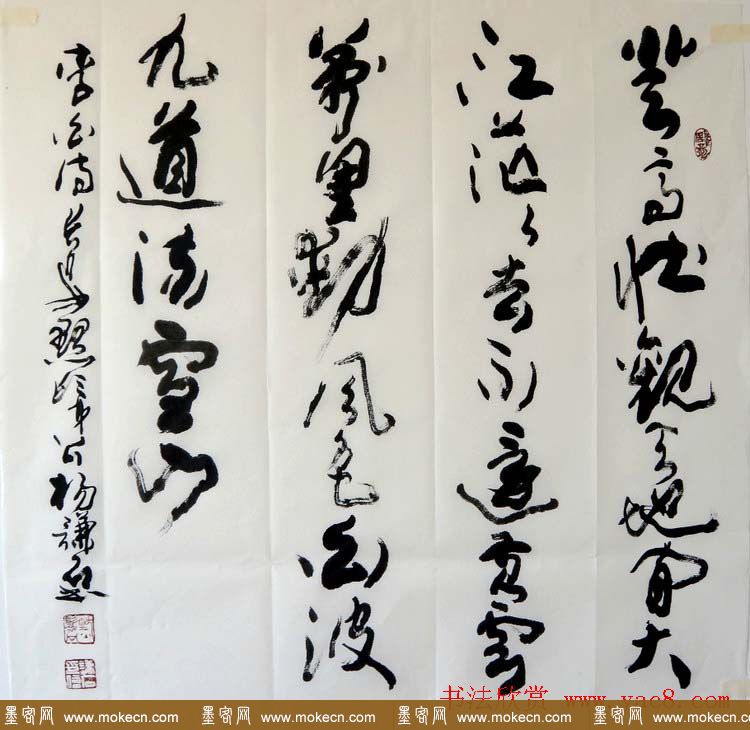 登高壯觀天地間大
江茫々去不還黃雲
萬里動風色白波
九道流雪山
李白詩 楊謙
书法欣赏 www.yac8.com
墨客网 www.mokecn.com 墨客网 www.mokecn.com 墨客网 www.mokecn.com 墨客网 www.mokecn.com